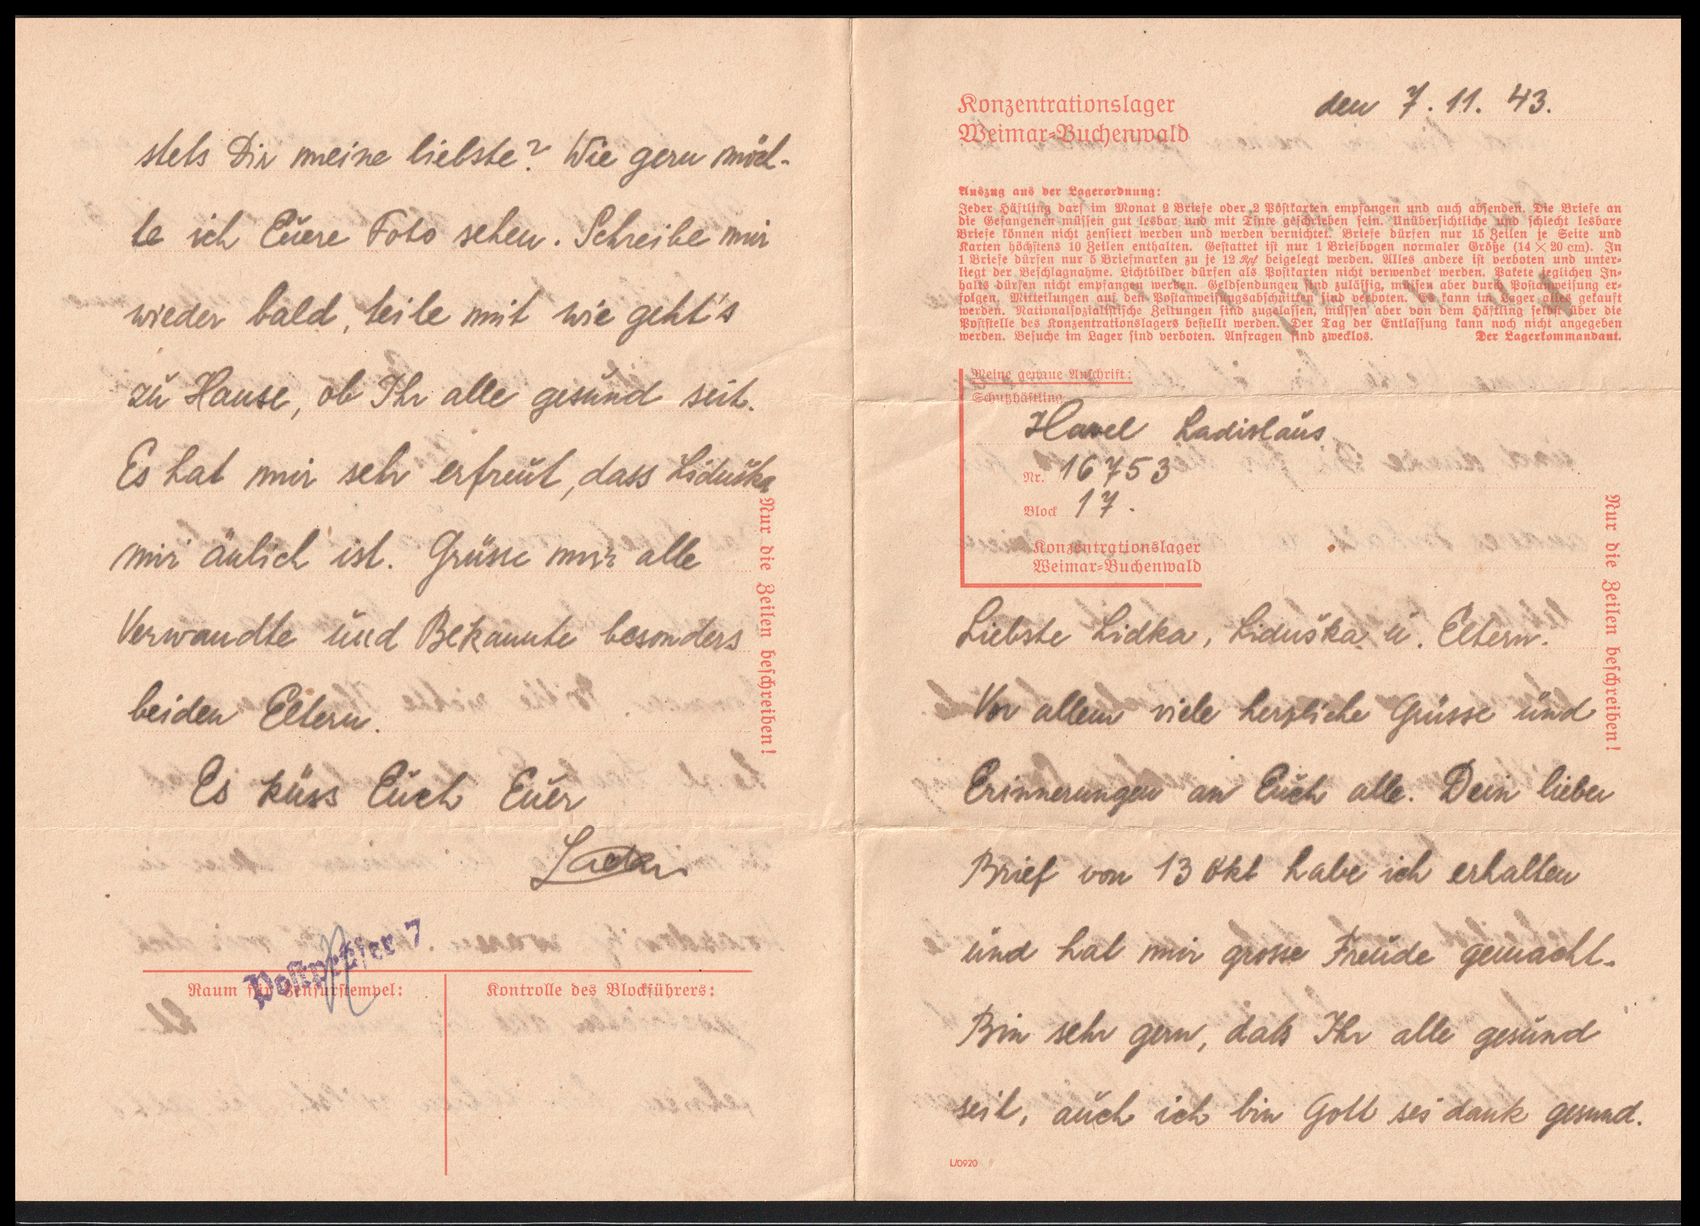 Konzentrationslager
Weimar-Buchenwald
den 7. 11. 43.
Auszug aus der Lagerordnung:
Jeder Häftling darf im Monat 2 Briefe oder 2 Postkarten empfangen und auch absenden. Die Briefe an
die Gefangenen müssen gut lesbar und mit Tinte geschrieben sein. Unübersichtliche und schlecht lesbare
Briefe können nicht zensiert werden und werden vernichtet. Briefe dürfen nur 15 Zeilen je Seite und
Karten höchstens 10 Zeilen enthalten. Gestattet ist nur 1 Briefbogen normaler Größe (14 × 20 cm). In
1 Briefe dürfen nur 5 Briefmarken zu je 12 Rpf beigelegt werden. Alles andere ist verboten und unter-
liegt der Beschlagnahme. Lichtbilder dürfen als Postkarten nicht verwendet werden. Pakete jeglichen In-
halts dürfen nicht empfangen werden. Geldsendungen sind zulässig, müssen aber durch Postanweisung er-
folgen. Mitteilungen auf den Postanweisungsabschnitten sind verboten. Es kann im Lager alles gekauft
werden. Nationalsozialistische Zeitungen sind zugelassen, müssen aber von dem Häftling selbst über die
Poststelle des Konzentrationslagers bestellt werden. Der Tag der Entlassung kann noch nicht angegeben
werden. Besuche im Lager sind verboten. Anfragen sind zwecklos. Der Lagerkommandant.
Meine genaue Anschrift:
Schutzhäftling
Havel Ladislaus
Nr. 16753
Block 17.
Konzentrationslager
Weimar-Buchenwald
Nur die Zeilen beschreiben!
Liebste Lidka, Liduška u. Eltern.
Vor allem viele herzliche Grüsse und
Erinnerungen an Euch alle. Dein lieber
Brief von 13 Okt habe ich erhalten
und hat mir grosse Freude gemacht.
Bin sehr gern, dass Ihr alle gesund
seit, auch ich bin Gott sei dank gesund.
L/0920
stets Dir meine liebste? Wie gern möch-
te ich Euere Foto sehen. Schreibe mir
wieder bald, teile mit wie geht's
zu Hause, ob Ihr alle gesund seit.
Es hat mir sehr erfreut, dass Liduška
mir änlich ist. Grüsse mir alle
Verwandte und Bekannte besonders
beiden Eltern.
Es küss Euch Euer
Nur die Zeilen beschreiben!
Postprüfer 7
Raum für Zensurstempel:
Kontrolle des Blockführers: